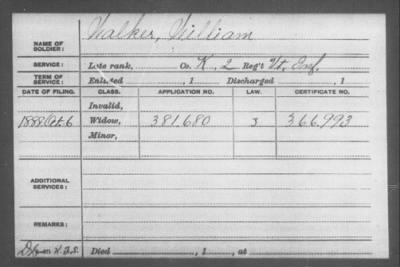 NAME OF SOLDIER: Walker, William
SERVICE: Late rank, Co. K, 2 Reg't Vt. Inf.
TERM OF SERVICE: Enlisted , 1 Discharged , 1
DATE OF FILING. CLASS. APPLICATION NO. LAW. CERTIFICATE NO.
Invalid,
1888 Oct. 6 Widow, 381.680 366.993
Minor,
ADDITIONAL SERVICES:
REMARKS:
Died , 1 , at